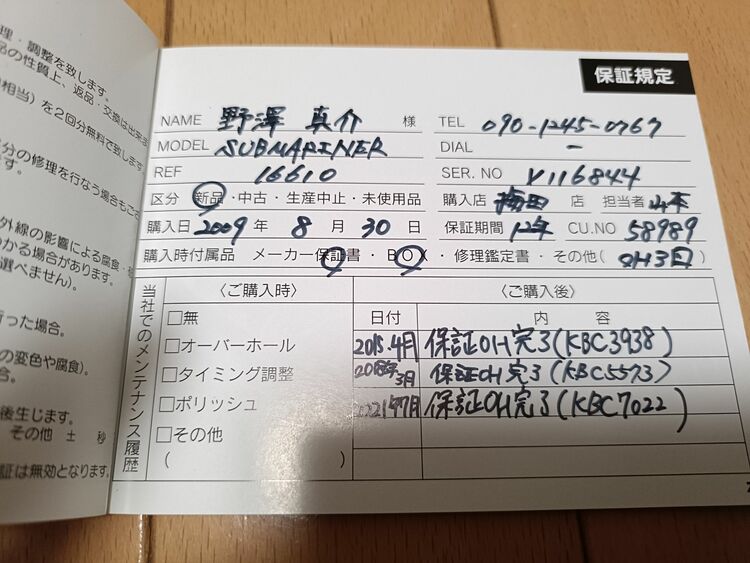 理・調整を致します。
品の性質上、返品・交換は出来
相当）を2回分無料で致します
分の修理を行なう場合もご
す。
外線の影響による腐食・
かる場合があります。
選べません）。
行った場合。
の変色や腐食）。
合。
後生じます。
その他 ± 秒
証は無効となります
保証規定
NAME 野澤 真介 様 TEL 090-1245-0767
MODEL SUBMARINER DIAL -
REF 16610 SER. NO V116844
区分 新品・中古・生産中止・未使用品 購入店 梅田 店 担当者 山本
購入日 2009 年 8 月 30 日 保証期間 12年 CU.NO 58989
購入時付属品 メーカー保証書・BOX・修理鑑定書・その他（OH3回）
当社でのメンテナンス履歴
〈ご購入時〉 〈ご購入後〉
□無 日付 内容
□オーバーホール 2015.4月 保証OH完了（KBC3938）
□タイミング調整 2018年3月 保証OH完了（KBC5573）
□ポリッシュ 2022年7月 保証OH完了（KBC7022）
□その他
（ ）